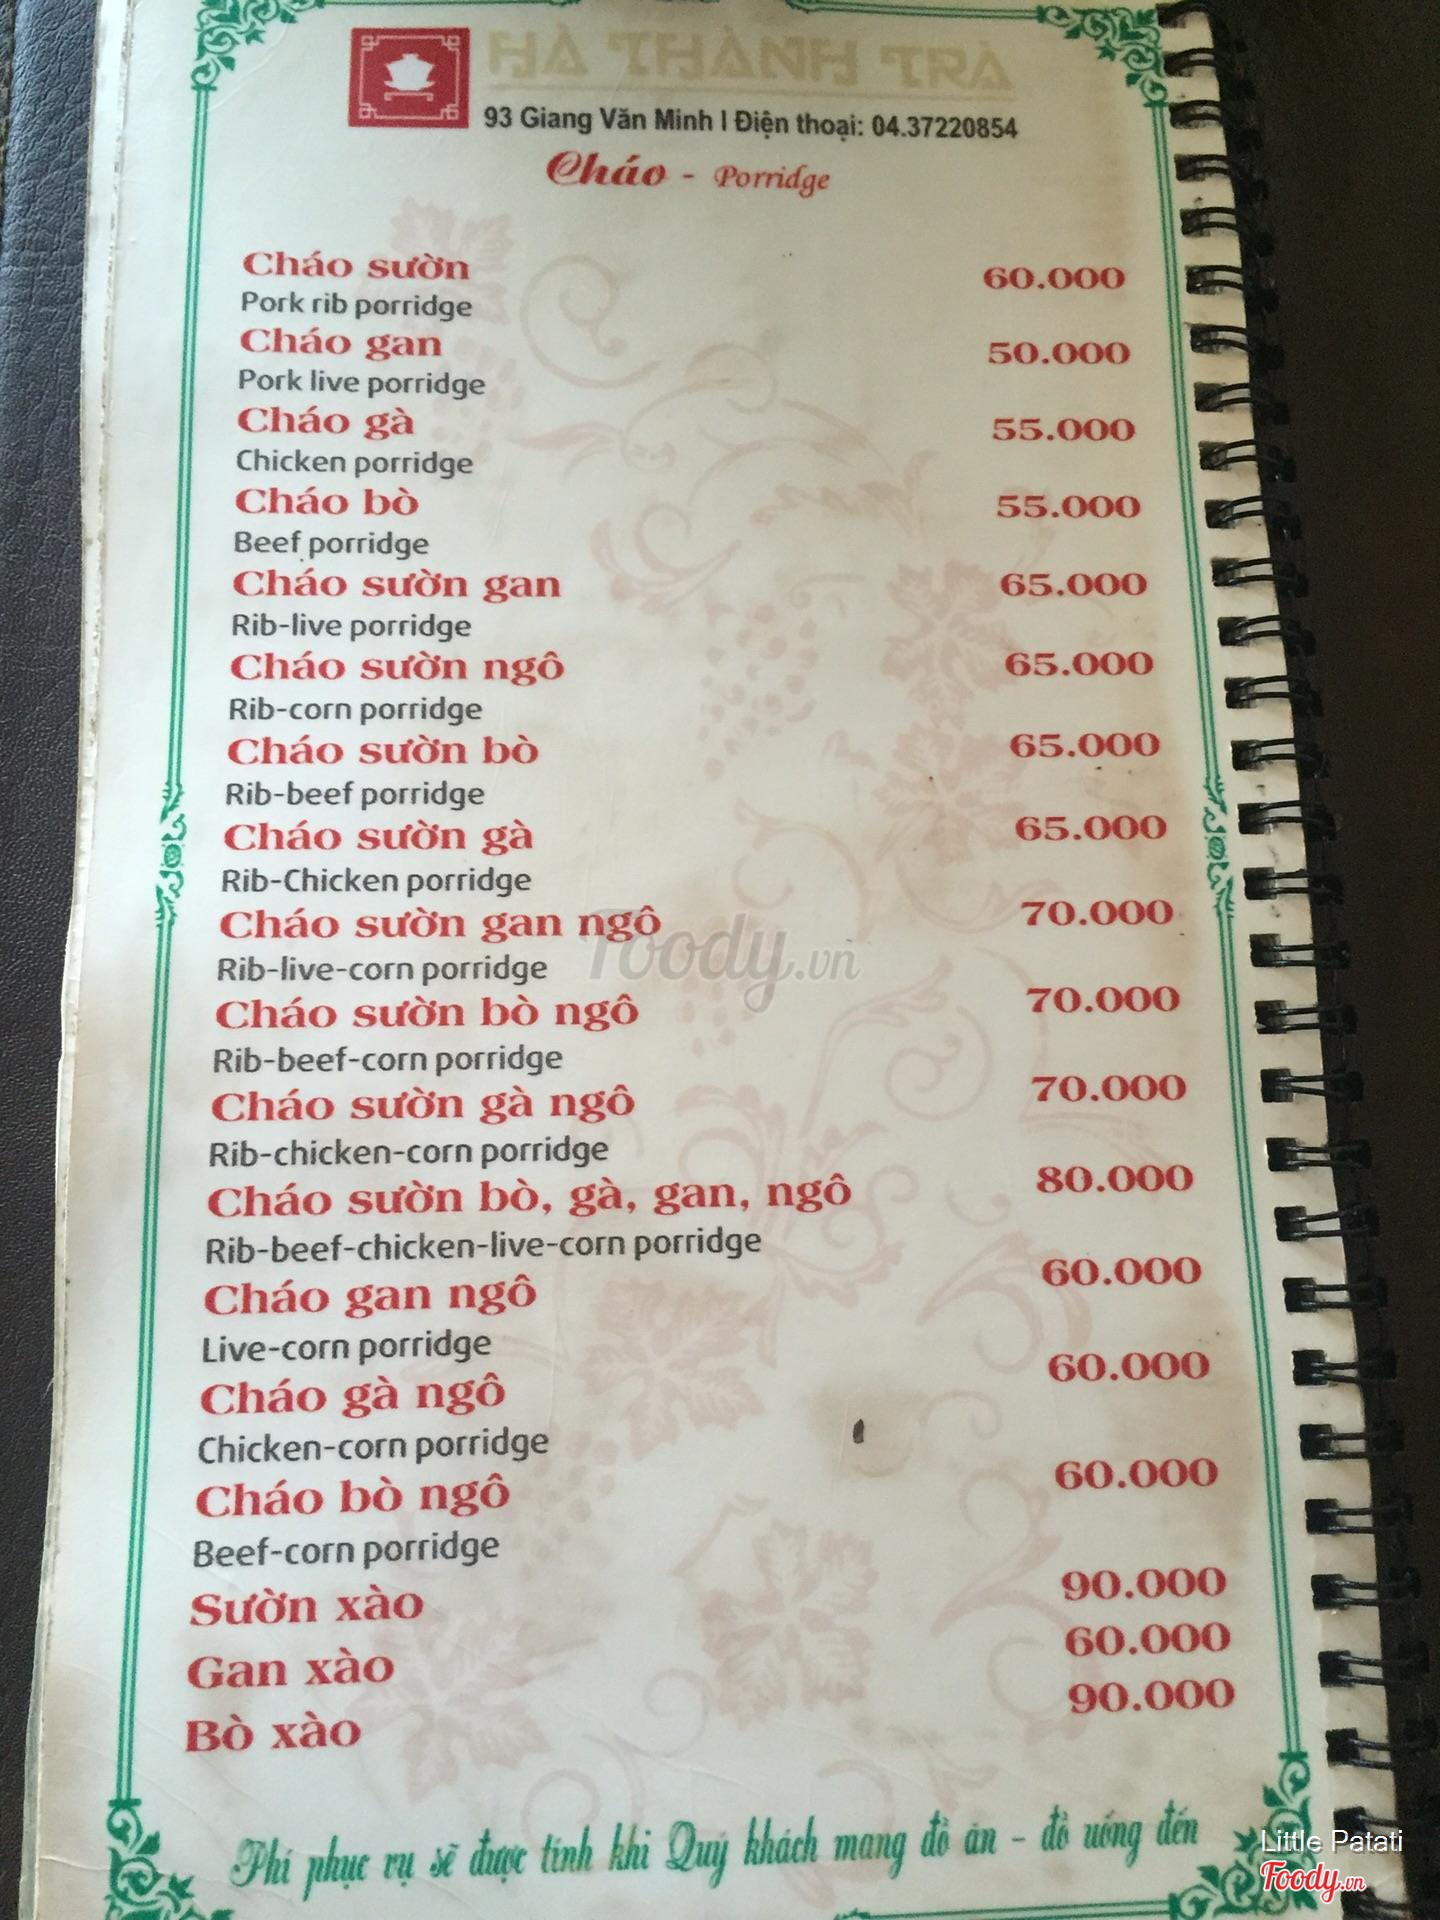 HÀ THÀNH TRÀ
93 Giang Văn Minh I Điện thoại: 04.37220854
Cháo - Porridge
Cháo sườn 60.000
Pork rib porridge
Cháo gan 50.000
Pork live porridge
Cháo gà 55.000
Chicken porridge
Cháo bò 55.000
Beef porridge
Cháo sườn gan 65.000
Rib-live porridge
Cháo sườn ngô 65.000
Rib-corn porridge
Cháo sườn bò 65.000
Rib-beef porridge
Cháo sườn gà 65.000
Rib-Chicken porridge
Cháo sườn gan ngô 70.000
Rib-live-corn porridge
Cháo sườn bò ngô 70.000
Rib-beef-corn porridge
Cháo sườn gà ngô 70.000
Rib-chicken-corn porridge
Cháo sườn bò, gà, gan, ngô 80.000
Rib-beef-chicken-live-corn porridge
Cháo gan ngô 60.000
Live-corn porridge
Cháo gà ngô 60.000
Chicken-corn porridge
Cháo bò ngô 60.000
Beef-corn porridge
Sườn xào 90.000
Gan xào 60.000
Bò xào 90.000
Phí phục vụ sẽ được tính khi Quý khách mang đồ ăn - đồ uống đến
Foody.vn
Little Patati
Foody.vn